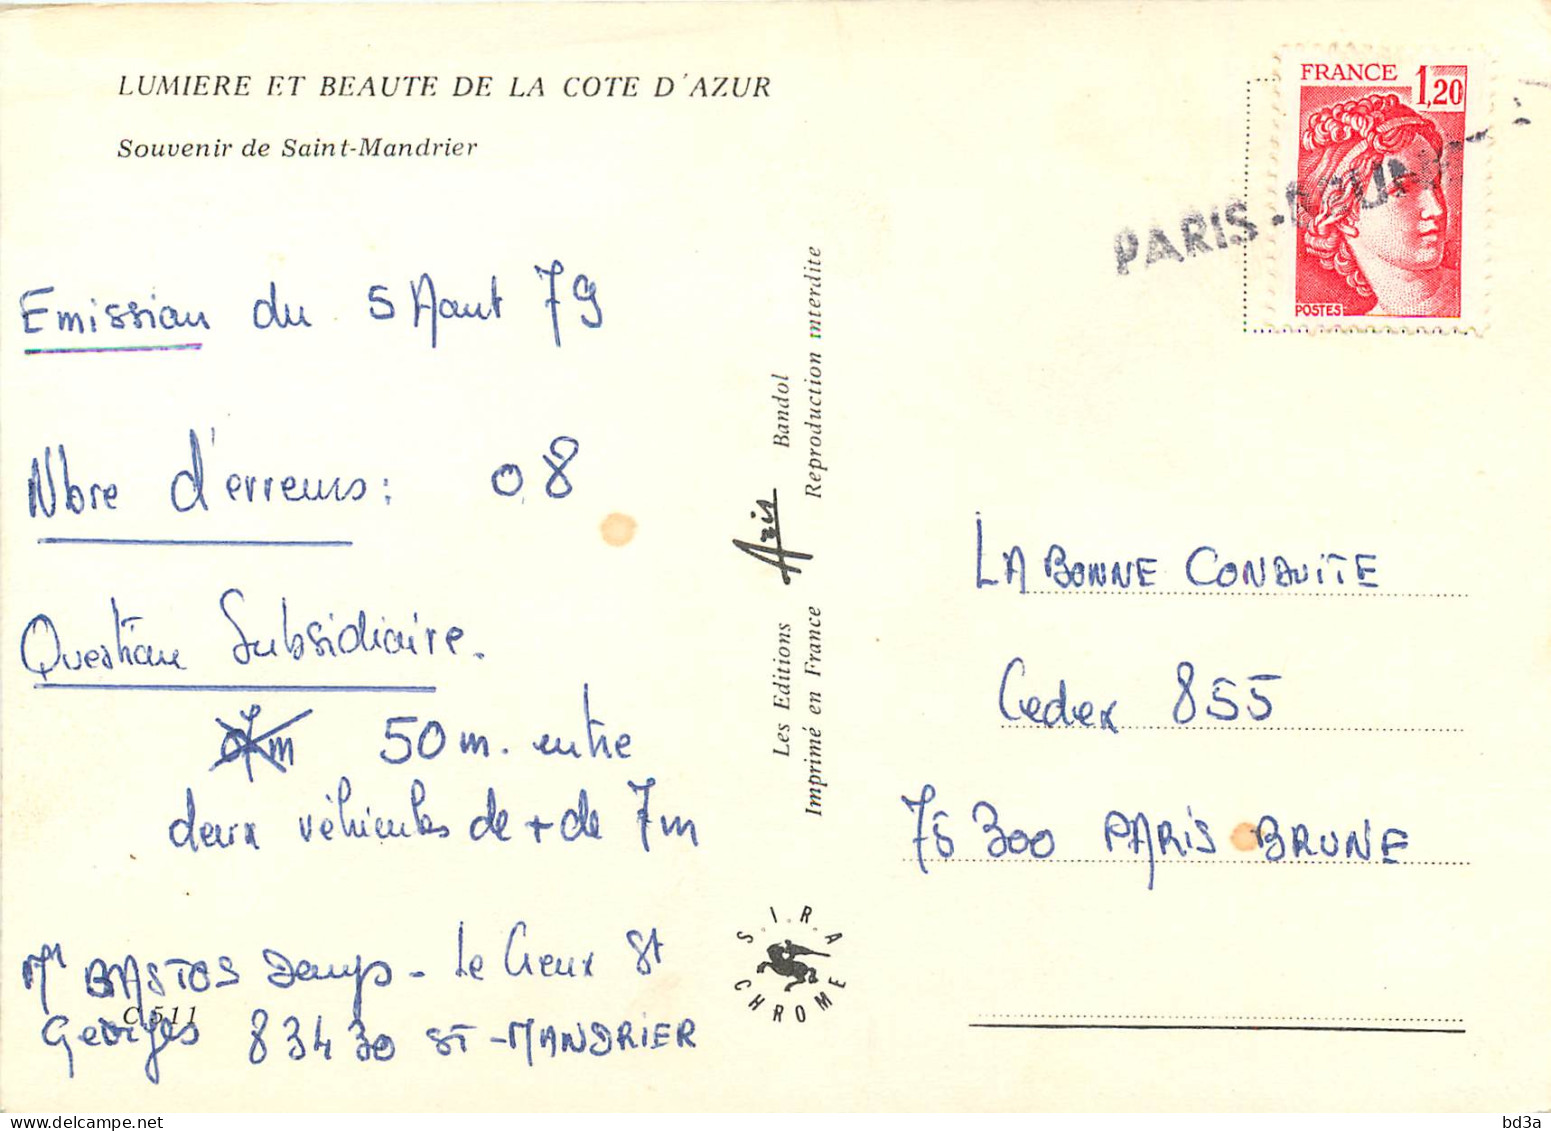 LUMIERE ET BEAUTE DE LA COTE D'AZUR
Souvenir de Saint-Mandrier
FRANCE 1,20
POSTES
PARIS-BRUNE
Emission du 5 Aout 79
Nbre d'erreurs: 08
Question Subsidiaire.
50 m. entre
deux véhicules de + de 7m
Mr BASTOS Denys - Le Creux St
Georges 83430 ST-MANDRIER
C 511
Les Editions Aris Bandol
Imprimé en France Reproduction interdite
S.I.R.A
CHROME
LA BONNE CONDUITE
Cedex 855
75300 PARIS BRUNE
bd3a